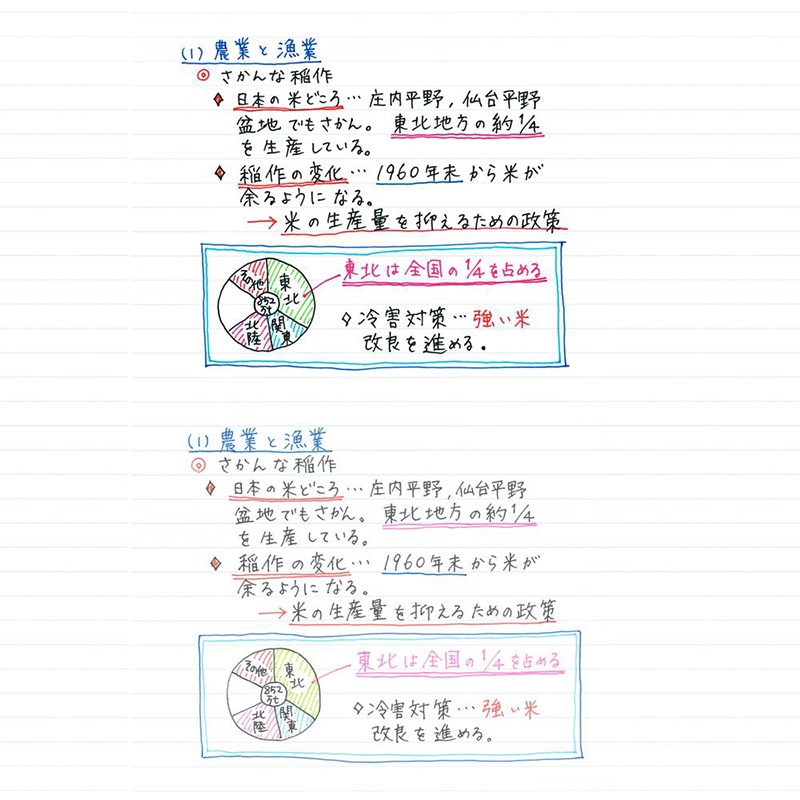 (1) 農業と漁業
◎ さかんな稲作
♦ 日本の米どころ… 庄内平野, 仙台平野
盆地でもさかん。 東北地方の約1/4
を生産している。
♦ 稲作の変化… 1960年末から米が
余るようになる。
→ 米の生産量を抑えるための政策
その他 東北
852万t
北陸 関東
東北は全国の1/4を占める
◇冷害対策…強い米
改良を進める。
(1) 農業と漁業
◎ さかんな稲作
♦ 日本の米どころ… 庄内平野, 仙台平野
盆地でもさかん。 東北地方の約1/4
を生産している。
♦ 稲作の変化… 1960年末から米が
余るようになる。
→ 米の生産量を抑えるための政策
その他 東北
852万t
北陸 関東
東北は全国の1/4を占める
◇冷害対策…強い米
改良を進める。